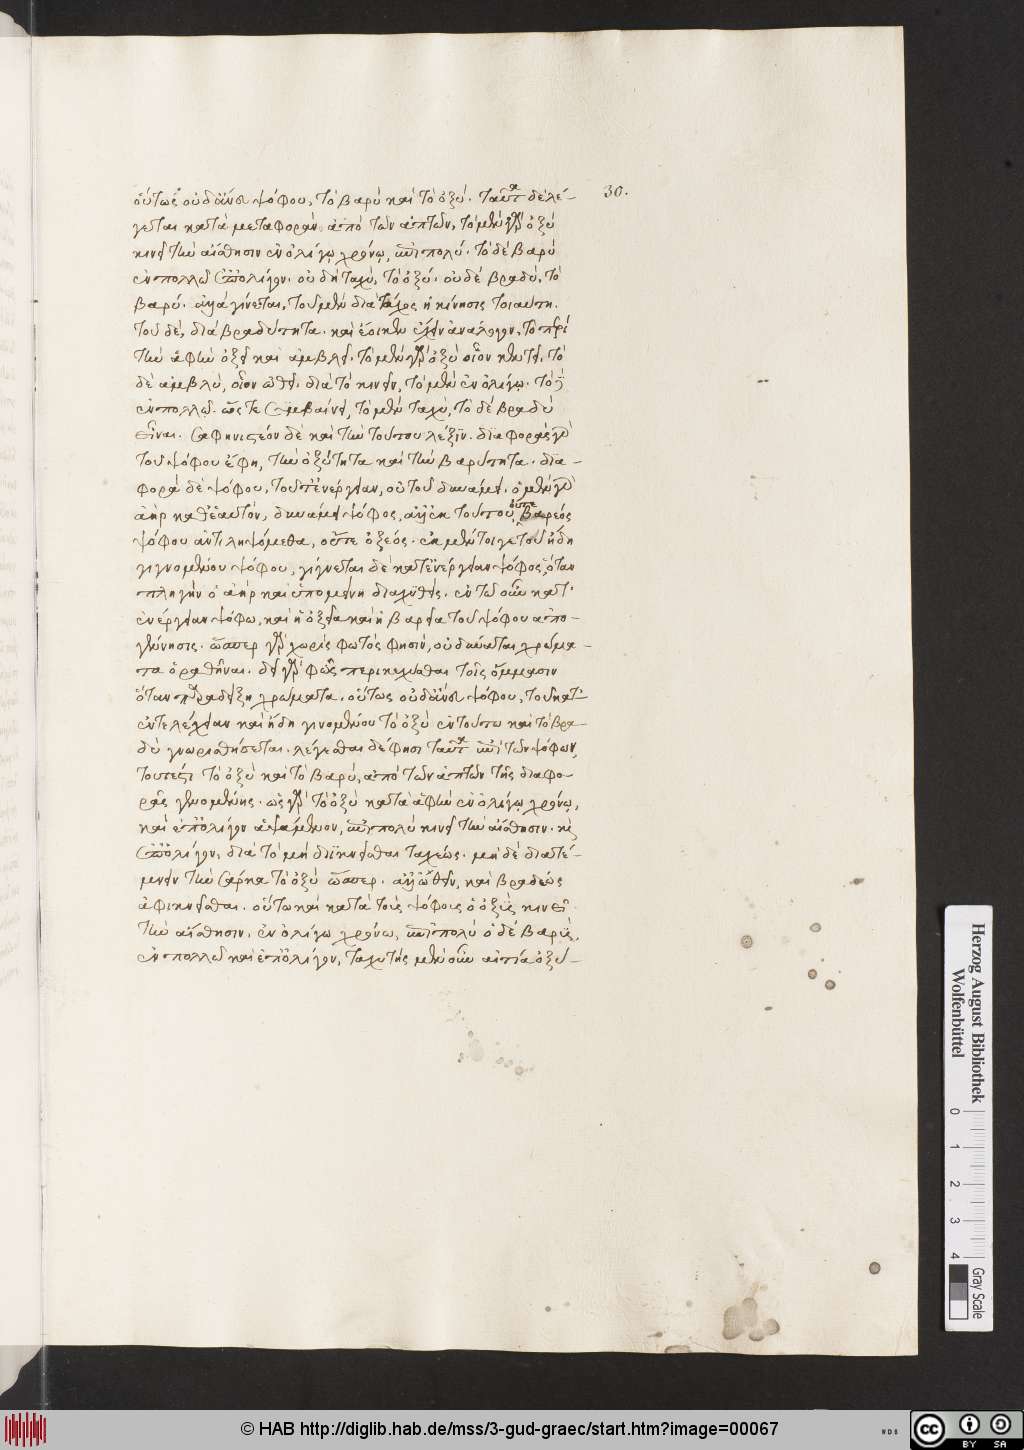 30.
οὕτως οὐδ' ἄνευ ψόφου, τὸ βαρὺ καὶ τὸ ὀξύ. ταῦτα δὲ λέ-
γεται κατὰ μεταφορὰν ἀπὸ τῶν ἁπτῶν, τὸ μὲν γὰρ ὀξὺ
κινεῖ τὴν αἴσθησιν ἐν ὀλίγῳ χρόνῳ, ἐπὶ πολύ. τὸ δὲ βαρὺ
ἐν πολλῶ ἐπ' ὀλίγον. οὐ δὴ ταχὺ, τὸ ὀξύ. οὐδὲ βραδὺ, τὸ
βαρύ. ἀλλὰ γίνεται, τοῦ μὲν διὰ τάχος ἡ κίνησις τοιαύτη.
τοῦ δὲ, διὰ βραδύτητα. καὶ ἔοικεν ἔχειν ἀνάλογον, τὸ περὶ
τὴν ἁφὴν ὀξεῖ καὶ ἀμβλεῖ. τὸ μὲν γὰρ ὀξὺ οἷον κεντεῖ, τὸ
δὲ ἀμβλὺ, οἷον ὠθεῖ. διὰ τὸ κινεῖν, τὸ μὲν ἐν ὀλίγῳ. τὸ δὲ
ἐν πολλῶ. ὥστε συμβαίνει, τὸ μὲν ταχὺ, τὸ δὲ βραδὺ
εἶναι. Σαφηνιστέον δὲ καὶ τὴν τούτου λέξιν. διαφορὰς γὰρ
τοῦ ψόφου ἔφη, τὴν ὀξύτητα καὶ τὴν βαρύτητα. δια-
φορὰ δὲ ψόφου, τοῦ κατ' ἐνέργειαν, οὐ τοῦ δυνάμει. ὁ μὲν γὰρ
ἀὴρ καθ' ἑαυτὸν, δυνάμει ψόφος, ἀλλ' ἐκ τούτου, οὔτε βαρέος
ψόφου ἀντιληψόμεθα, οὔτε ὀξέος. ἐκ μέντοι γε τοῦ ἤδη
γιγνομένου ψόφου, γίγνεται δὲ κατ' ἐνέργειαν ψόφος, ὅταν
πληγὴν ὁ ἀὴρ καὶ ὑπομείνῃ διαχυθείς. ἐν τῶ οὖν κατ'
ἐνέργειαν ψόφω, καὶ ἡ ὀξεῖα καὶ ἡ βαρεῖα τοῦ ψόφου ἀπο-
γέννησις. ὥσπερ γὰρ χωρὶς φωτὸς φησὶν, οὐ δύναται χρώμα-
τα ὁραθῆναι. δεῖ γὰρ φῶς περικεχύσθαι τοῖς ὄμμασιν
ὅταν παραδείξῃ χρώματα. οὕτως οὐδ' ἄνευ ψόφου, τοῦ κατ'
ἐντελέχειαν καὶ ἤδη γινομένου τὸ ὀξὺ ἐν τούτω καὶ τὸ βρα-
δὺ γνωρισθήσεται. λέγεσθαι δέ φησι ταῦτα ἐπὶ τῶν ψόφων,
τουτέστι τὸ ὀξὺ καὶ τὸ βαρὺ, ἀπὸ τῶν ἁπτῶν τῆς διαφο-
ρᾶς γενομένης. ὡς γὰρ τὸ ὀξὺ κατὰ ἁφὴν ἐν ὀλίγῳ χρόνῳ,
καὶ ἐπ' ὀλίγον ἁψάμενον, ἐπὶ πολὺ κινεῖ τὴν αἴσθησιν. καὶ
ἐπ' ὀλίγον, διὰ τὸ μὴ διϊκνεῖσθαι ταχέως. μὴ δὲ διατέ-
μνειν τὴν σάρκα τὸ ὀξὺ ὥσπερ. ἀλλ' ὠθεῖν, καὶ βραδέως
ἀφικνεῖσθαι. οὕτω καὶ κατὰ τοὺς ψόφους ὁ ὀξὺς κινεῖ
τὴν αἴσθησιν, ἐν ὀλίγω χρόνω, ἐπὶ πολὺ ὁ δὲ βαρὺς,
ἐν πολλῶ καὶ ἐπ' ὀλίγον, ταχυτὴς μὲν οὖν αἰτία ὀξύ-
Herzog August Bibliothek
Wolfenbüttel
0 1 2 3 4
Gray Scale
© HAB http://diglib.hab.de/mss/3-gud-graec/start.htm?image=00067
WDB
CC BY SA